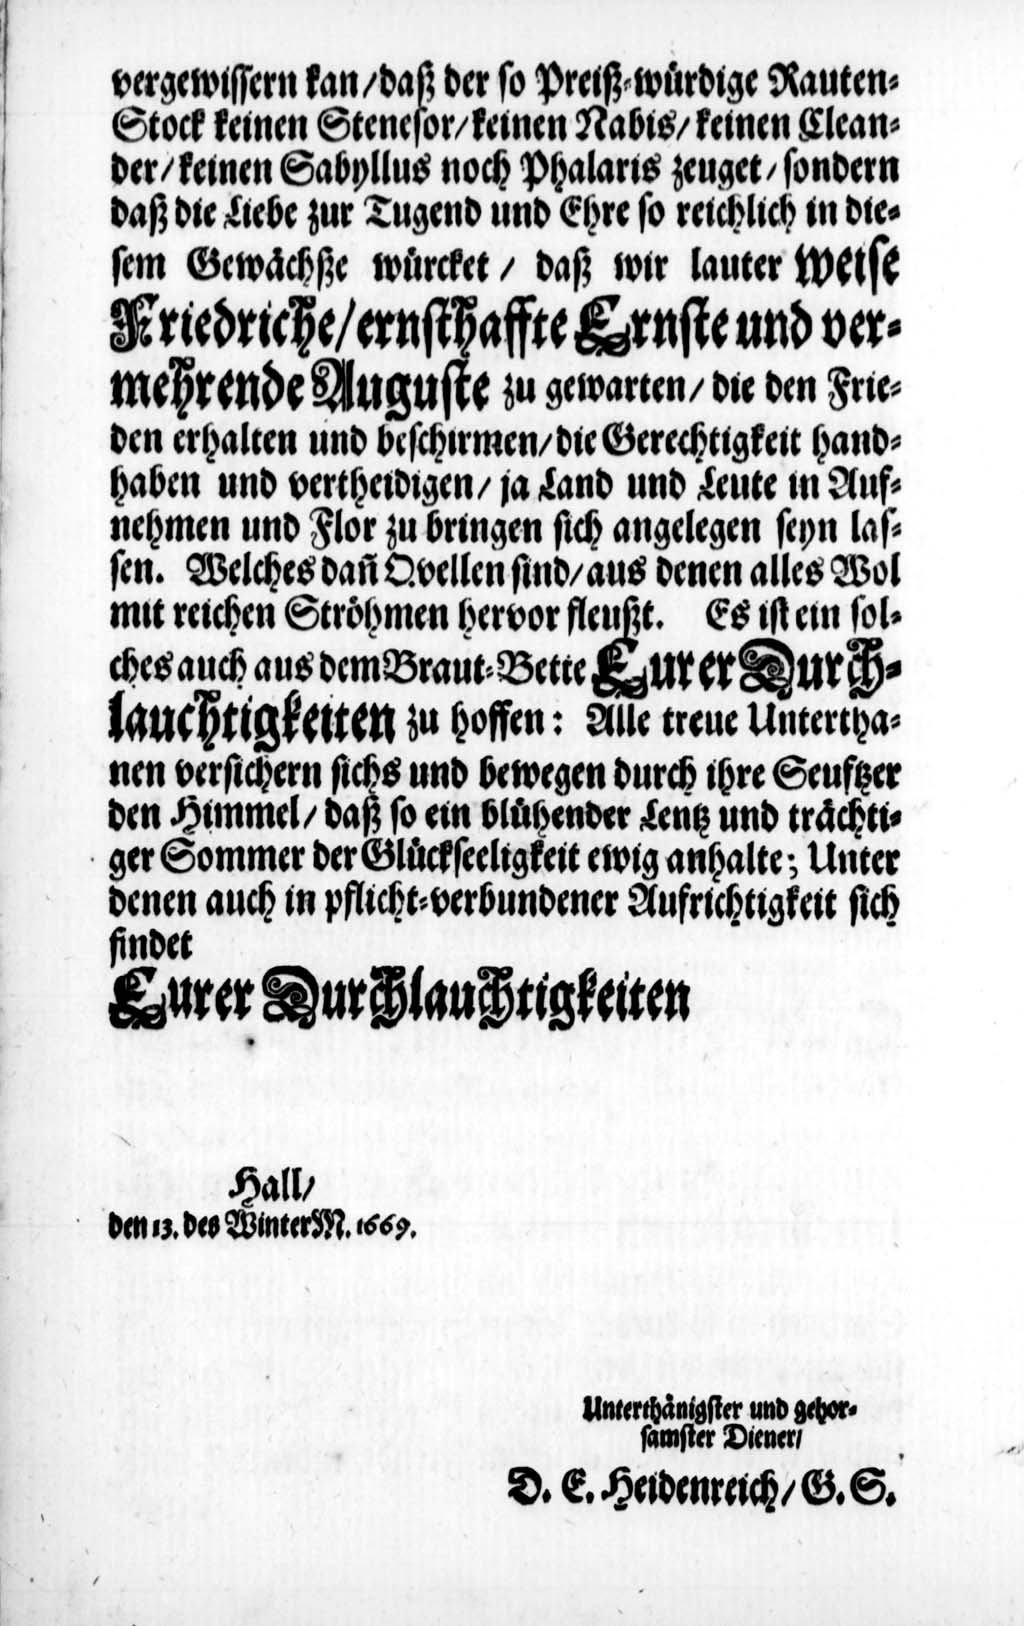 vergewissern kan/daß der so Preiß-würdige Rauten-
Stock keinen Stenesor/keinen Nabis/keinen Clean-
der/keinen Sabyllus noch Phalaris zeuget/sondern
daß die Liebe zur Tugend und Ehre so reichlich in die-
sem Gewächße würcket / daß wir lauter weise
Friedriche/ernsthaffte Ernste und ver-
mehrende Auguste zu gewarten/ die den Frie-
den erhalten und beschirmen/die Gerechtigkeit hand-
haben und vertheidigen/ ja Land und Leute in Auf-
nehmen und Flor zu bringen sich angelegen seyn las-
sen. Welches dañ Qvellen sind/aus denen alles Wol
mit reichen Ströhmen hervor fleußt. Es ist ein sol-
ches auch aus dem Braut-Bette Eurer Durch-
lauchtigkeiten zu hoffen: Alle treue Untertha-
nen versichern sichs und bewegen durch ihre Seuftzer
den Himmel/ daß so ein blühender Lentz und trächti-
ger Sommer der Glückseeligkeit ewig anhalte; Unter
denen auch in pflicht-verbundener Aufrichtigkeit sich
findet
Eurer Durchlauchtigkeiten
Hall/
den 13. des WinterM. 1669.
Unterthänigster und gehor-
samster Diener/
D. E. Heidenreich/ G. S.